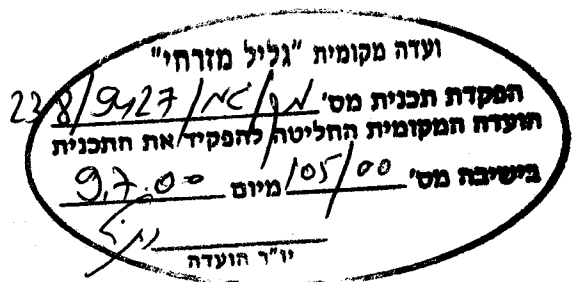 ועדה מקומית "גליל מזרחי"
הפקדת תכנית מס' מק/גא/9427/238
הועדה המקומית החליטה להפקיד את התכנית
בישיבה מס' 105/00 מיום 9.7.00
יו"ר הועדה